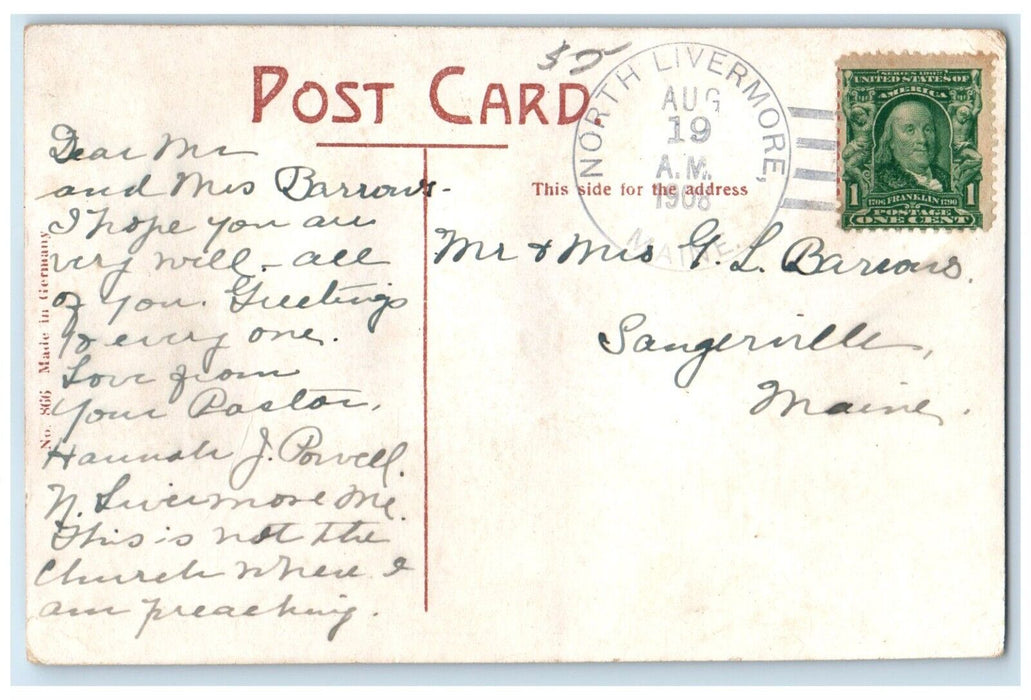 $5
POST CARD
NORTH LIVERMORE,
AUG
19
A.M.
1908
MAINE.
SERIES 1902
UNITED STATES OF
AMERICA
1
1
1706 FRANKLIN 1790
POSTAGE
ONE CENT
This side for the address
Dear Mr
and Mrs Barrows-
I hope you are
very well - all
of you. Greetings
to every one.
Love from
Your Pastor,
Hannah J. Powell.
N. Livermore Me.
This is not the
Church where I
am preaching.
Mr & Mrs G. L. Barrows.
Sangerville,
Maine.
No. 866 Made in Germany